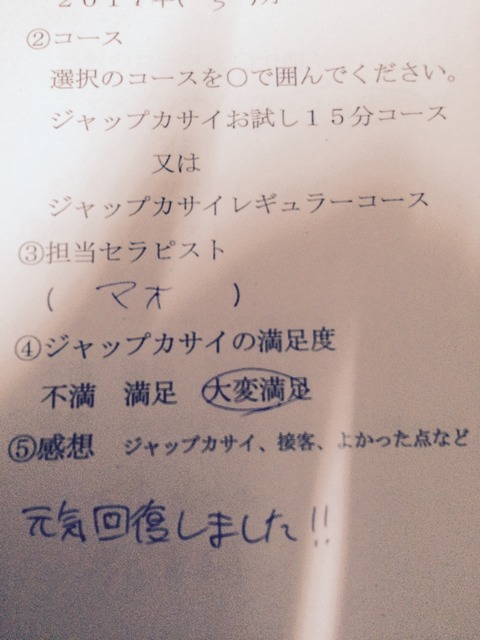 2017年(5)月
②コース
選択のコースを〇で囲んでください。
ジャップカサイお試し15分コース
又は
ジャップカサイレギュラーコース
③担当セラピスト
( マオ )
④ジャップカサイの満足度
不満 満足 大変満足
⑤感想 ジャップカサイ、接客、よかった点など
元気回復しました!!